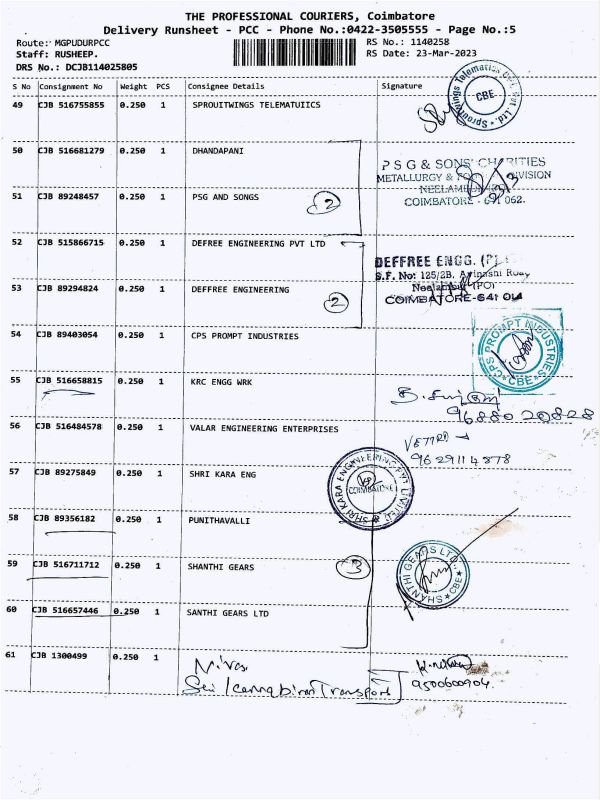 THE PROFESSIONAL COURIERS, Coimbatore
Delivery Runsheet - PCC - Phone No.:0422-3505555 - Page No.:5
Route: MGPUDURPCC
RS No.: 1140258
Staff: RUSHEEP.
RS Date: 23-Mar-2023
DRS No.: DCJB114025805
S No Consignment No Weight PCS Consignee Details Signature
49 CJB 516755855 0.250 1 SPROUITWINGS TELEMATUIICS
Sprouitwings Telematics Pvt. Ltd. CBE
50 CJB 516681279 0.250 1 DHANDAPANI
P S G & SONS' CHARITIES
METALLURGY & DIVISION
51 CJB 89248457 0.250 1 PSG AND SONGS 2
COIMBATORE - 641 062.
52 CJB 515866715 0.250 1 DEFREE ENGINEERING PVT LTD
DEFFREE ENGG. (P)
S.F. No: 125/2B, Avinashi Road
53 CJB 89294824 0.250 1 DEFFREE ENGINEERING 2
Neelambur (PO)
COIMBATORE-641 
54 CJB 89403054 0.250 1 CPS PROMPT INDUSTRIES
CPS PROMPT INDUSTRIES CBE
55 CJB 516658815 0.250 1 KRC ENGG WRK
96880 20828
56 CJB 516484578 0.250 1 VALAR ENGINEERING ENTERPRISES
9629114878
57 CJB 89275849 0.250 1 SHRI KARA ENG
SHRI KARA ENGINEERING PVT LIMITED COIMBATORE
58 CJB 89356182 0.250 1 PUNITHAVALLI
59 CJB 516711712 0.250 1 SHANTHI GEARS 3
SHANTHI GEARS LTD. CBE
60 CJB 516657446 0.250 1 SANTHI GEARS LTD
61 CJB 1300499 0.250 1
Sri Kannabiran Transport
9500600904